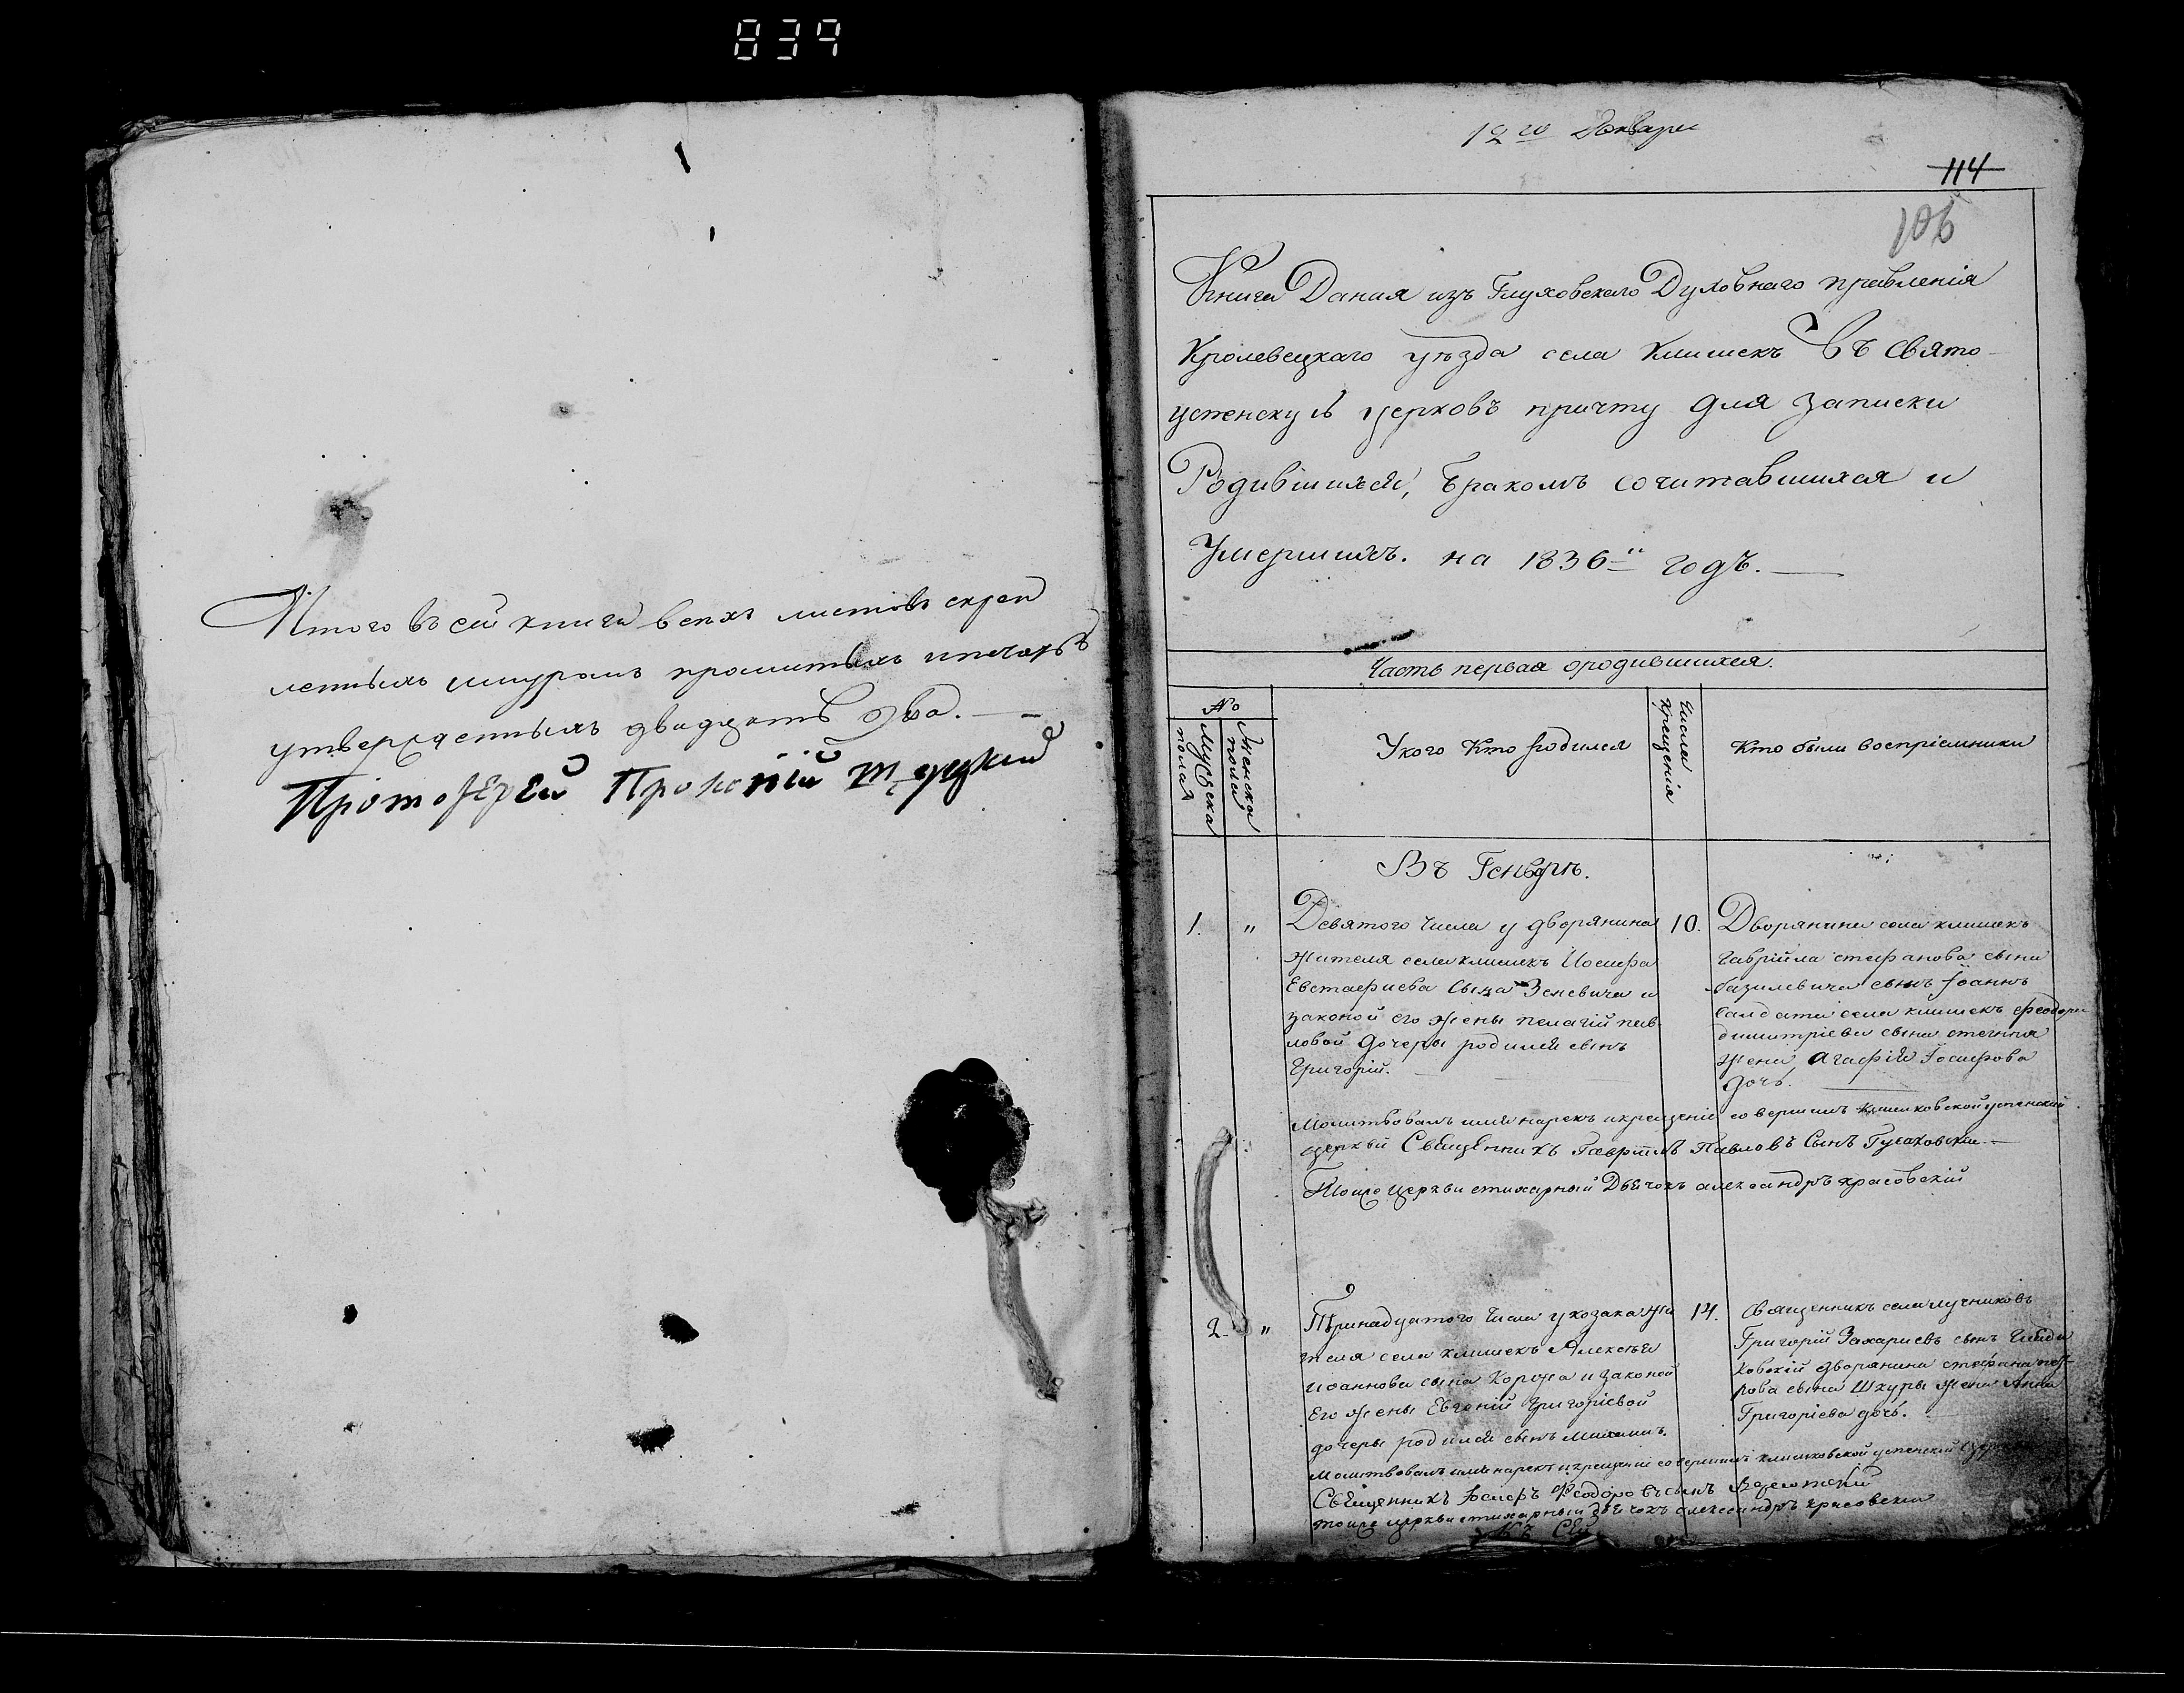 839
Итого въ сей книги всехъ листовъ скреп
ленныхъ шнуромъ прошитыхъ и печатью
утвержденныхъ двадцать два. —
Протоіерей Прокопій
12го Января
114
106
Книга Данная изъ Глуховскаго Духовнаго правленія
Кролевецкаго уезда села Клишекъ Въ Свято-
успенскую церковъ причту для записки
Родившихся, Бракомъ сочитавшихся и
Умершихъ. на 1836й годъ. —
Часть первая ородившихся.
№
Мужеска пола
Женска пола
У кого Кто родился
Числа крещенія
Кто были воспріемники
Въ Генваре.
1. " Девятого числа у дворянина
жителя села клишекъ Иосифа
Евстафиева Сына Зеневича и
законой его жены пелагіи пав-
ловой дочеры родился сынъ
Григорій.
10. Дворянина села клишекъ
гавріила стефанова сына
базилевича сынъ Іоаннъ
салдата села клишекъ феодора
димитріева сына
жена, агафія Іосифова
дочь.
Молитвовалъ имя нарекъ и крещеніе совершилъ клишковской успенской
церкви Священникъ Гавріилъ Павловъ Сынъ Гусаковски —
Тоиже Церкви стихарный Дьячокъ александръ красовскій
2. " Тринадцатого числа у козака жи
теля села клишекъ Алексея
иоаннова сына Коржа и законой
Его жены Евгеніи Григоріевой
дочеры родился сынъ Михаилъ.
14. Священникъ села лучниковъ
Григорій Захариевъ сынъ
ковскій дворянина стефана пет-
рова сына Шкуры жена Анна
Григоріева дочь.
Молитвовалъ имя нарекъ и крещеніе совершилъ клишковской успенской церкви
Священникъ Іосифъ Феодоровъ сынъ
тоиже церкви стихарный дьячокъ александръ красовскій